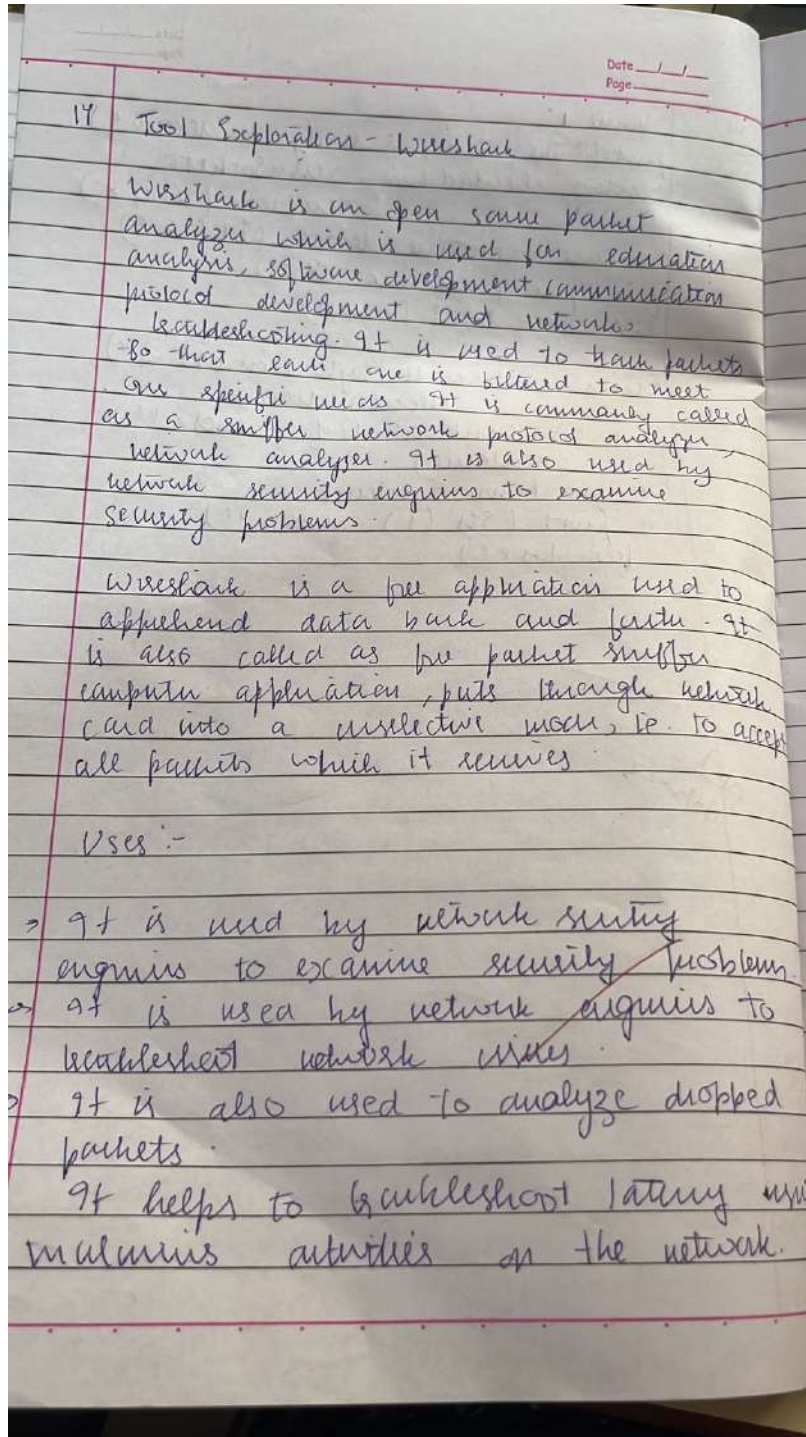 Date / /
Page
14 Tool Exploration - Wireshark
Wireshark is an open source packet
analyzer which is used for education
analysis, software development communication
protocol development and network
troubleshooting. It is used to track packets
so that each one is filtered to meet
our specific needs It is commonly called
as a sniffer network protocol analyzer,
network analyser. It is also used by
network security engineers to examine
security problems.
Wireshark is a free application used to
apprehend data back and forth. It
is also called as free packet sniffer
computer application, puts through network
card into a unselective mode, ie. to accept
all packets which it receives.
Uses :-
⇒ It is used by network security
engineers to examine security problems.
⇒ It is used by network engineers to
troubleshoot network issues.
It is also used to analyze dropped
packets.
It helps to troubleshoot latency
malicious activities on the network.